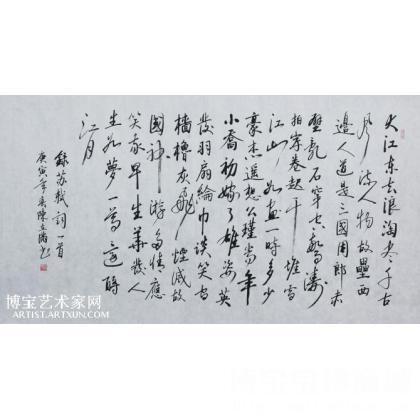 大江东去浪淘尽千古
风流人物故垒西
边人道是三国周郎赤
壁乱石穿空惊涛
拍岸卷起千堆雪
江山如画一时多少
豪杰遥想公瑾当年
小乔初嫁了雄姿英
发羽扇纶巾谈笑间
樯橹灰飞烟灭故
国神游多情应
笑我早生华发人
生如梦一尊还酹
江月
录苏轼词一首
庚寅年
博宝艺术家网
ARTIST.ARTXUN.COM